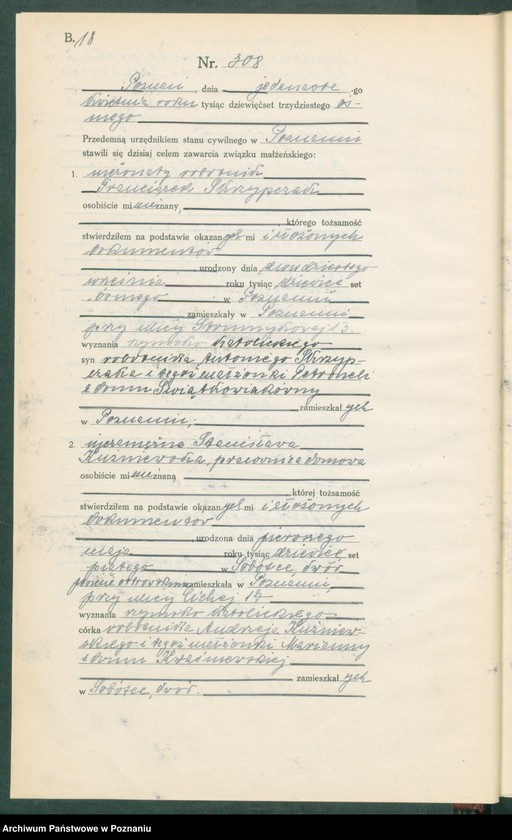 B. 18
Nr. 308
Poznań, dnia jedenaste -go
kwietnia roku tysiąc dziewięćset trzydziestego ós-
mego
Przedemną urzędnikiem stanu cywilnego w Poznaniu
stawili się dzisiaj celem zawarcia związku małżeńskiego:
1. nieżonaty robotnik
Franciszek Skrzypczak
osobiście mi nieznany,
którego tożsamość
stwierdziłem na podstawie okazanych mi i złożonych
dokumentów
, urodzony dnia dwudziestego
września roku tysiąc dziewięć set
siódmego w Poznaniu
, zamieszkały w Poznaniu
przy ulicy 13.
wyznania rzymsko katolickiego
syn robotnika Antoniego Skrzyp-
czaka i tegoż małżonki Petroneli
z domu Świątkowiakówny
zamieszkałych
w Poznaniu,
2. niezamężna Stanisława
Kuźniewska, pracownica domowa
osobiście mi nieznaną
której tożsamość
stwierdziłem na podstawie okazanych mi i złożonych
dokumentów
, urodzona dnia pierwszego
maja roku tysiąc dziewięć set
piątego w Sobótce, dwór
powiecie ostrowskim zamieszkała w Poznaniu,
przy ulicy Cichej
wyznania rzymsko katolickiego
córka robotnika Andrzeja Kuźniew-
skiego i tegoż małżonki Marianny
z domu Kraśniewskiej
zamieszkałych
w Sobótce, dwór.
Archiwum Państwowe w Poznaniu